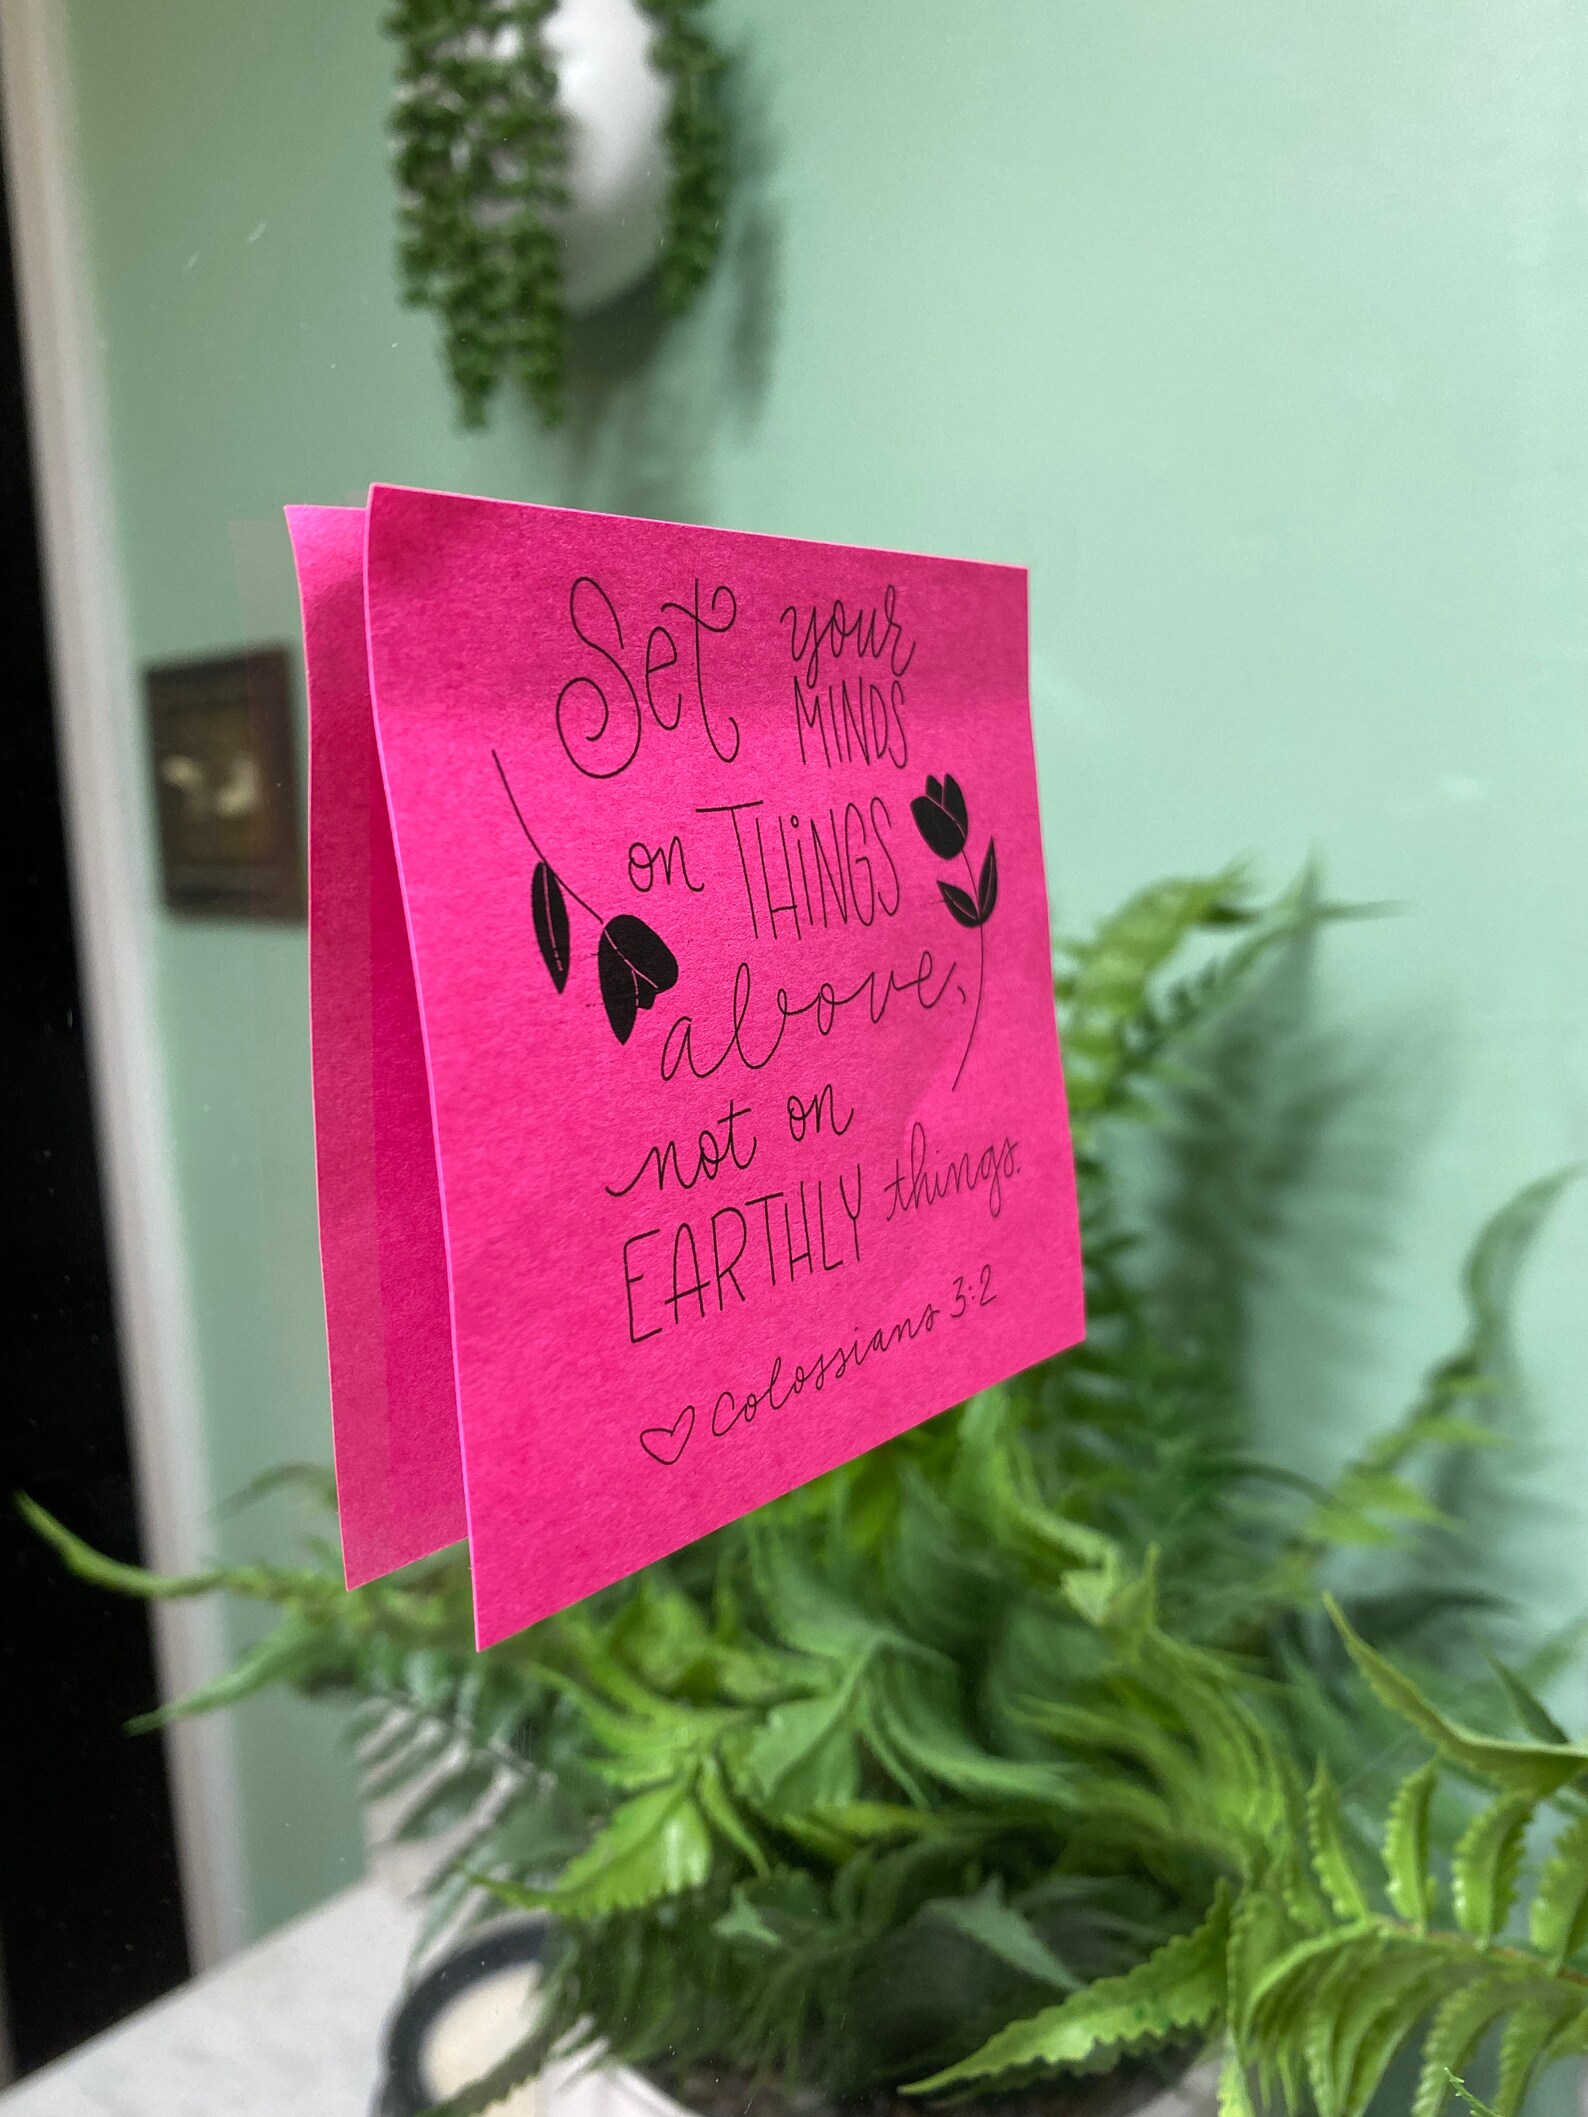 Set your
MINDS
on THiNGS
above,
not on
EARTHLY things.
♡ Colossians 3:2